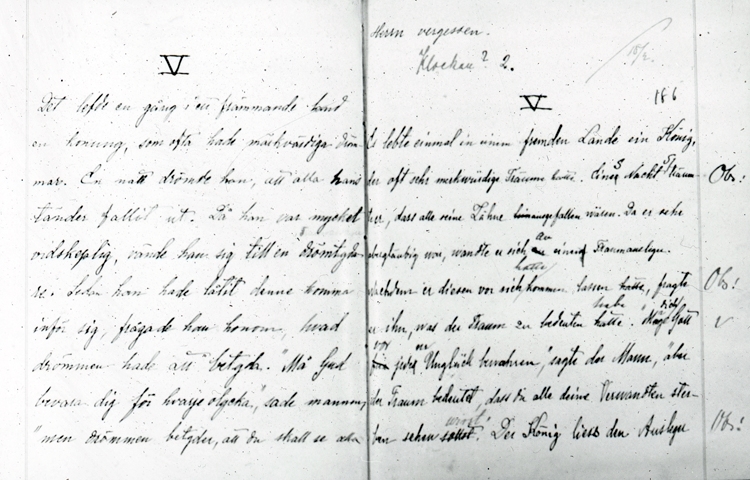 V
Det lefde en gång i ett främmande land
en konung, som ofta hade märkvärdiga dröm-
mar. En natt drömde han, att alla hans
tänder fallit ut. Då han var mycket
vidskeplig, vände han sig till en drömtyda-
re. Sedan han hade låtit denne komma
inför sig, frågade han honom, hvad
drömmen hade att betyda. "Må Gud
bevara dig för hvarje olycka," sade mannen,
"men drömmen betyder, att du skall se alla
Herrn vergessen.
Klockan? 2.
18/2
186
V
Es lebte einmal in einem fremden Lande ein König,
der oft sehr merkwürdige Träume hatte. Eines Nachts träum-
Obs!
te er, dass alle seine Zähne hinausgefallen wären. Da er sehr
abergläubig war, wandte er sich an einen Traumausleger.
an
hatte
Nachdem er diesen vor sich kommen lassen hatte, fragte
Obs!
habe
sich
er ihn, was der Traum zu bedeuten hätte. "Möge Gott
v
vor
für jedem Unglück bewahren," sagte der Mann, "aber
der Traum bedeutet, dass du alle deine Verwandten ster-
wirst
ben sehen sollst." Der König liess den Ausleger
Obs!